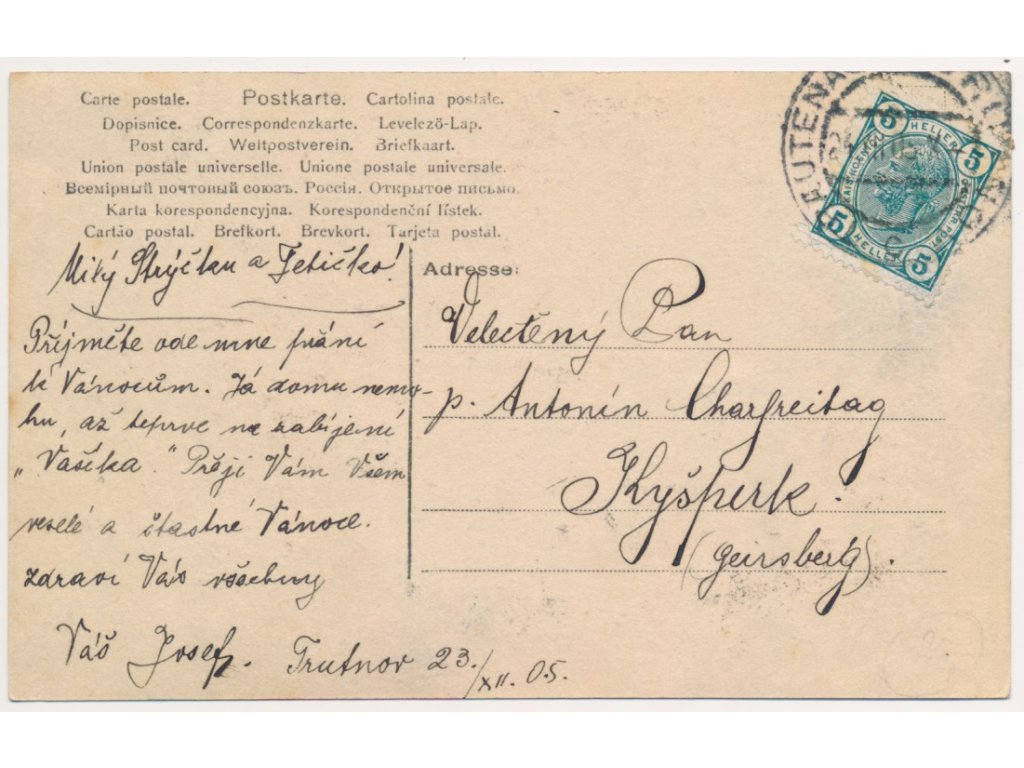 Carte postale. Postkarte. Cartolina postale.
Dopisnice. Correspondenzkarte. Levelező-Lap.
Post card. Weltpostverein. Briefkaart.
Union postale universelle. Unione postale universale.
Всемірный почтовый союзъ. Россія. Открытое письмо.
Karta korespondencyjna. Korespondenční lístek.
Cartão postal. Brefkort. Brevkort. Tarjeta postal.
Milý Strýčku a Tetičko!
Příjměte ode mne přání
k Vánocům. Já domu nemo-
hu, až teprve na zabíjení
„Vašíka." Přeji Vám Všem
veselé a šťastné Vánoce.
zdraví Vás všechny
Váš Josef. Trutnov 23./XII. 05.
Adresse:
Velectěný Pan
p. Antonín Charfreitag
Kyšperk.
(Geirsberg).
TRUTNOV
5 HELLER 5
KAIS. KÖNIGL. OESTERR. POST
5 HELLER 5